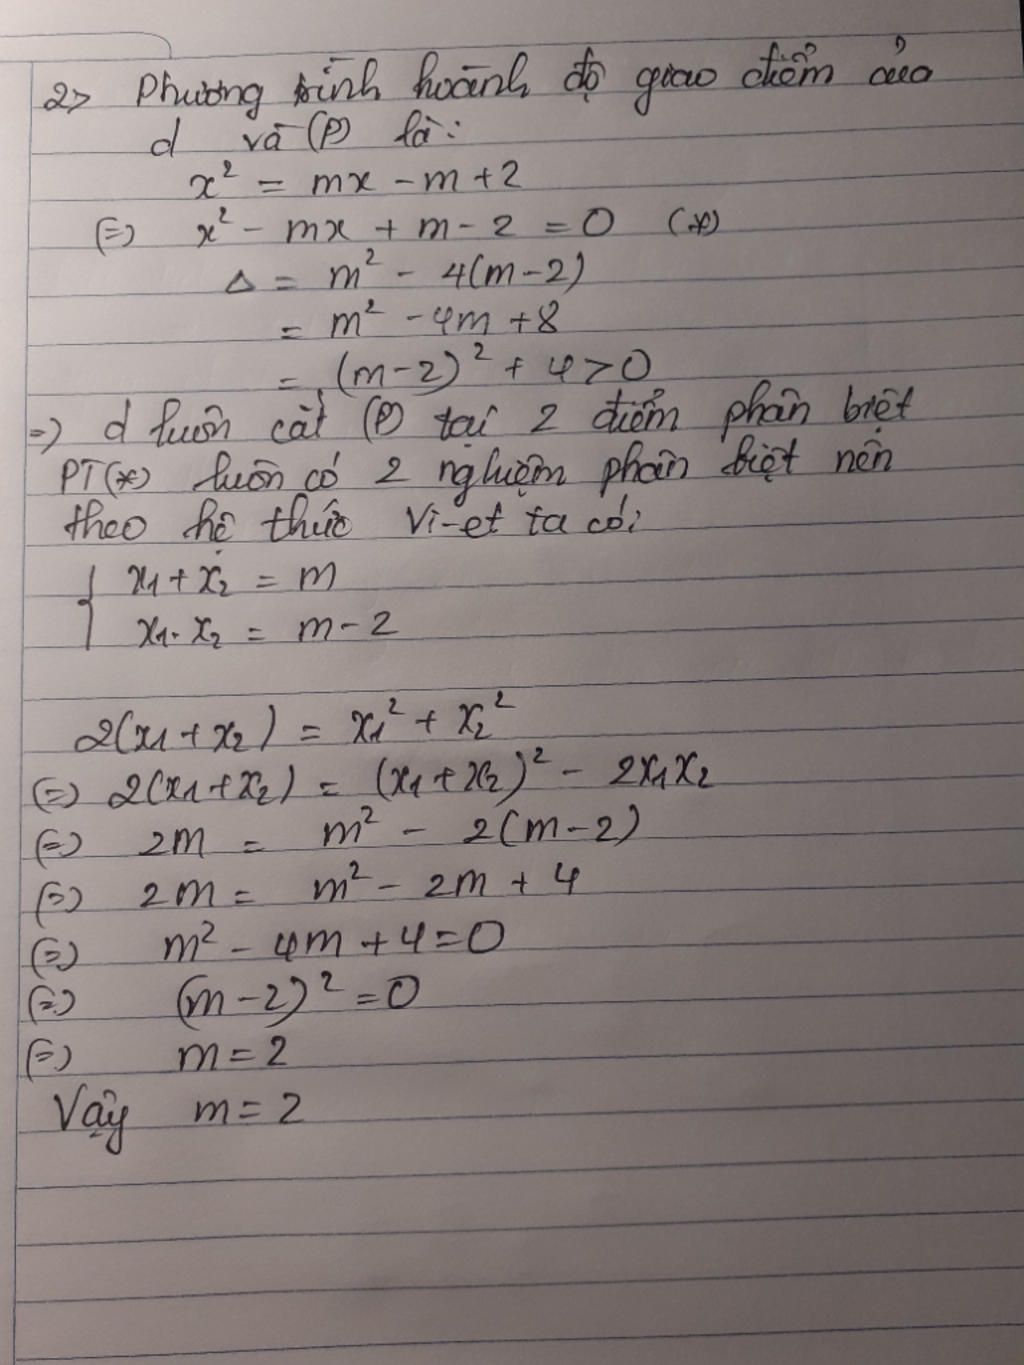 2> Phương trình hoành độ giao điểm của
d và (P) là:
x² = mx - m + 2
(=) x² - mx + m - 2 = 0 (*)
Δ = m² - 4(m-2)
= m² - 4m + 8
= (m-2)² + 4 > 0
=> d luôn cắt (P) tại 2 điểm phân biệt
PT(*) luôn có 2 nghiệm phân biệt nên
theo hệ thức Vi-et ta có:
{ x₁ + x₂ = m
x₁. x₂ = m - 2
2(x₁ + x₂) = x₁² + x₂²
(=) 2(x₁ + x₂) = (x₁ + x₂)² - 2x₁x₂
(=) 2m = m² - 2(m-2)
(=) 2m = m² - 2m + 4
(=) m² - 4m + 4 = 0
(=) (m-2)² = 0
(=) m = 2
Vậy m = 2